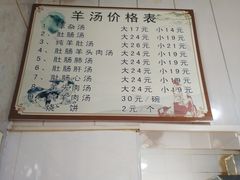 羊汤价格表
杂汤 大17元 小14元
2、肚肠汤 大24元 小19元
3、纯羊肚汤 大26元 小21元
4、肚肠羊头肉汤 大24元 小19元
5、肚肠肺汤 大24元 小19元
6、肚肠肝汤 大24元 小19元
7、肚肠心汤 大24元 小19元
肉汤 大24元 小19元
肉汤 30元/碗
烧饼 2元/个